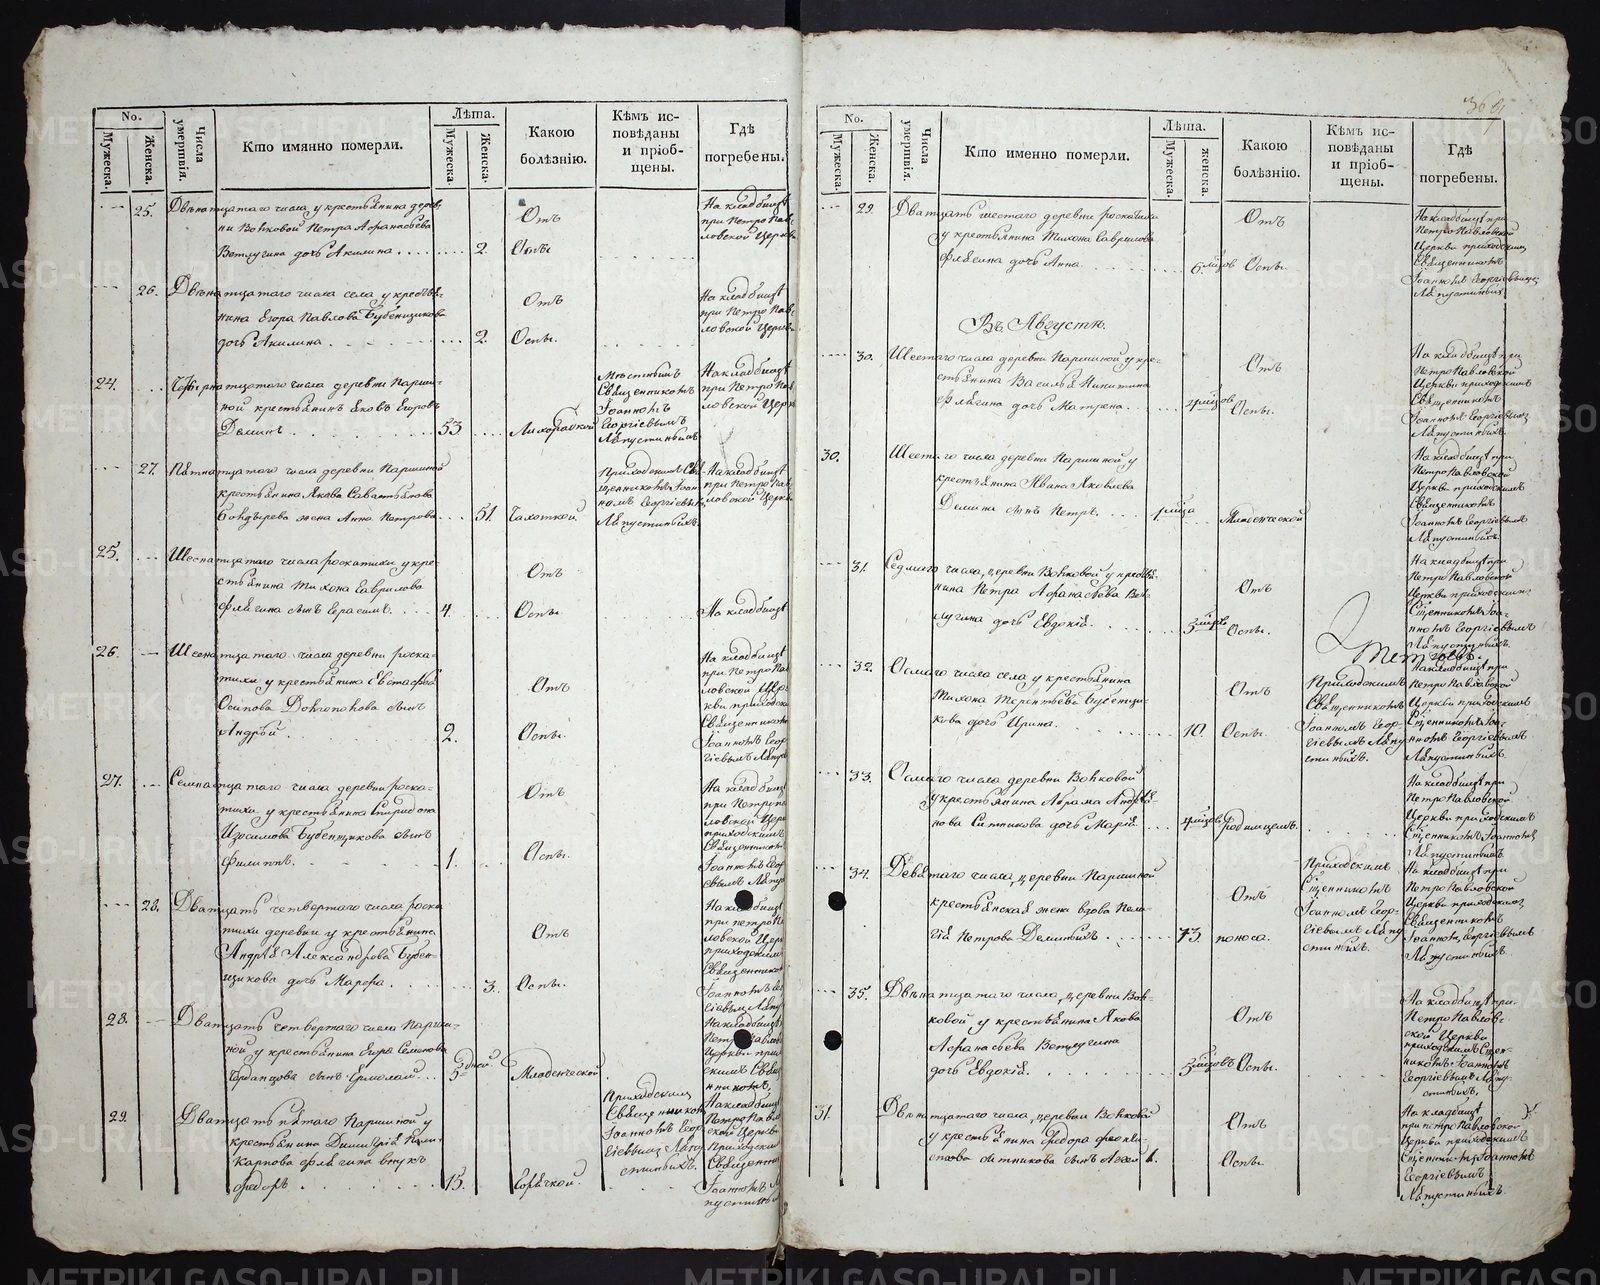 No.
Мужеска.
Женска.
Числа умертвія.
Кто имянно померли.
Лѣта.
Мужеска.
Женска.
Какою болѣзнію.
Кѣмъ исповѣданы и пріобщены.
Гдѣ погребены.
25. Двѣнатцатаго числа у крестьянина дерев-
ни Волковой Петра Афанасьева
Ветлугина дочь Акилина 2. Отъ Оспы
На кладбищѣ
при Петро Пав-
ловской Церкви
26. Двѣнатцатаго числа села у крестья-
нина Егора Павлова Бубенщикова
дочь Акилина 2. Отъ Оспы.
На кладбищѣ
при Петро Пав-
ловской Церкви
24. Четырнатцатаго числа деревни Парши-
ной крестьянинъ Яковъ Егоровъ
Деминъ 53 Лихораткой
Мѣстнымъ
Священникомъ
Іоанномъ
Георгіевымъ
Лапустинымъ
На кладбищѣ
при Петро Пав-
ловской Церкви
27. Пятнатцатаго числа деревни Паршиной
крестьянина Якова Саватьянова
Бондырева жена Анна Петрова 51. Чахоткой
Приходскимъ Свя-
щенникомъ Іоан-
номъ Георгіевымъ
Лапустинымъ.
На кладбищѣ
при Петро Пав-
ловской Церкви
25. Шеснатцатаго числа роскатихи у кре-
стьянина Тихона Гаврилова
Флягина сынъ Герасимъ 4. Отъ Оспы.
На кладбищѣ
26. Шеснатцатаго числа деревни роска-
тихи у крестьянина Евстафья
Осипова сынъ
Андрей 2. Отъ Оспы.
На кладбищѣ
при Петро Пав-
ловской Цер-
кви приходски
Священникомъ
Іоанномъ Геор-
гіевымъ Лапус
27. Семнатцатаго числа деревни роска-
тихи у крестьянина Спиридона
Изосимова Бубенщикова сынъ
Филиппъ 1. Отъ Оспы.
На кладбищѣ
при Петро Па
ловской Церк
приходскимъ
Священником
Іоанномъ Геор
евымъ Лапус
28. Дватцать четвертаго числа роска
тихи деревни у крестьянина
Андрея Александрова Бубен-
щикова дочь Марфа 3. Отъ Оспы.
На кладбищѣ
при петро П
ловской Церк
приходским
Священником
Іоанномъ Ге
гіевымъ Лапу
28. Дватцать четвертаго числа Парши-
ной у крестьянина Егора Семенова
сынъ Ермолай 5 дней Младенческой
На кладбищѣ
Петро Павло
Церкви прих
скимъ Свяще
нникомъ
29. Дватцать пятаго Паршиной у
крестьянина Димитрія
Карпова Флягина внукъ
Федоръ 15. Горячкой.
Приходскимъ
Священником
Іоанномъ Геор
гіевымъ Лапу
стинымъ.
На кладбищѣ
Петро Павло
ской Церкви
Приходским
Священник
Іоанномъ Ла
пустинымъ
No.
Мужеска.
Женска.
Числа умертвія.
Кто именно померли.
Лѣта.
Мужеска.
женска.
Какою болѣзнію.
Кѣмъ исповѣданы и пріобщены.
Гдѣ погребены.
29. Дватцать шестаго деревни роскатихи
у крестьянина Тихона Гаврилова
Флягина дочь Анна 6 мцовъ Отъ Оспы.
На кладбищѣ при
Петро Павловской
Церкви приходским
Священникомъ
Іоанномъ Георгіевымъ
Лапустинымъ
Въ Августѣ.
30. Шестаго числа деревни Паршиной у кре-
стьянина Василья Никитина
Флягина дочь Матрена 4 мцовъ Отъ Оспы.
На кладбищѣ при
Петро Павловской
Церкви приходскимъ
Священникомъ
Іоанномъ Георгіевымъ
Лапустинымъ.
30. Шестаго числа деревни Паршиной у
крестьянина Ивана Яковлева
Демина сынъ Петръ. 1 мца Младенческой
На кладбищѣ при
Петро Павловской
Церкви приходскимъ
Священникомъ
Іоанномъ Георгіевымъ
Лапустинымъ.
31. Седмаго числа, деревни Волковой у крестья-
нина Петра Афанасьева Вет-
лугина дочь Евдокія. 3 мцовъ Отъ Оспы.
На кладбищѣ при
Петро Павловской
Церкви приходским
Сщенникомъ Іоа-
нномъ Георгіевымъ
Лапустинымъ.
32. Осмаго числа села у крестьянина
Тихона Терентьева Бубенщи-
кова дочь Ирина. 10. Отъ Оспы.
Приходскимъ
Священникомъ
Іоанномъ Геор-
гіевымъ Лапу
стинымъ.
На кладбищѣ при
Петро Павловской
Церкви приходскимъ
Сщенникомъ Іоа-
нномъ Георгіевымъ
Лапустинымъ.
33. Осмаго числа деревни Волковой
у крестьянина Абрама Андрея-
нова Ситникова дочь Марія 4 мцовъ Родимцемъ.
На кладбищѣ при
Петро Павловской
Церкви приходскимъ
Сщенникомъ Іоанномъ
Лапустинымъ
34. Девятаго числа, деревни Паршиной
крестьянская жена вдова Пела-
гія Петрова Деминыхъ 73. Отъ поноса.
Приходскимъ
Сщенникомъ
Іоанномъ Геор-
гіевымъ Лапу
стинымъ.
На кладбищѣ при
Петро Павловской
Церкви приходским
Священникомъ
Іоанномъ Георгіевымъ
Лапустинымъ.
35. Двѣнатцатаго числа, деревни Вол-
ковой у крестьянина Якова
Афанасьева Ветлугина
дочь Евдокія. 3 мцовъ Отъ Оспы.
На кладбищѣ при
Петро Павлов-
ской Церкви
приходскимъ Сщен-
никомъ Іоанномъ
Георгіевымъ Лапу-
стинымъ.
31. Двѣнатцатаго числа, деревни Волковой
у крестьянина Федора
Ситникова сынъ 1. Отъ Оспы.
На кладбищѣ
при петро Павловской
Церкви приходскимъ
Сщенникомъ Іоанномъ
Георгіевымъ
Лапустинымъ.
METRIKI.GASO-URAL.RU